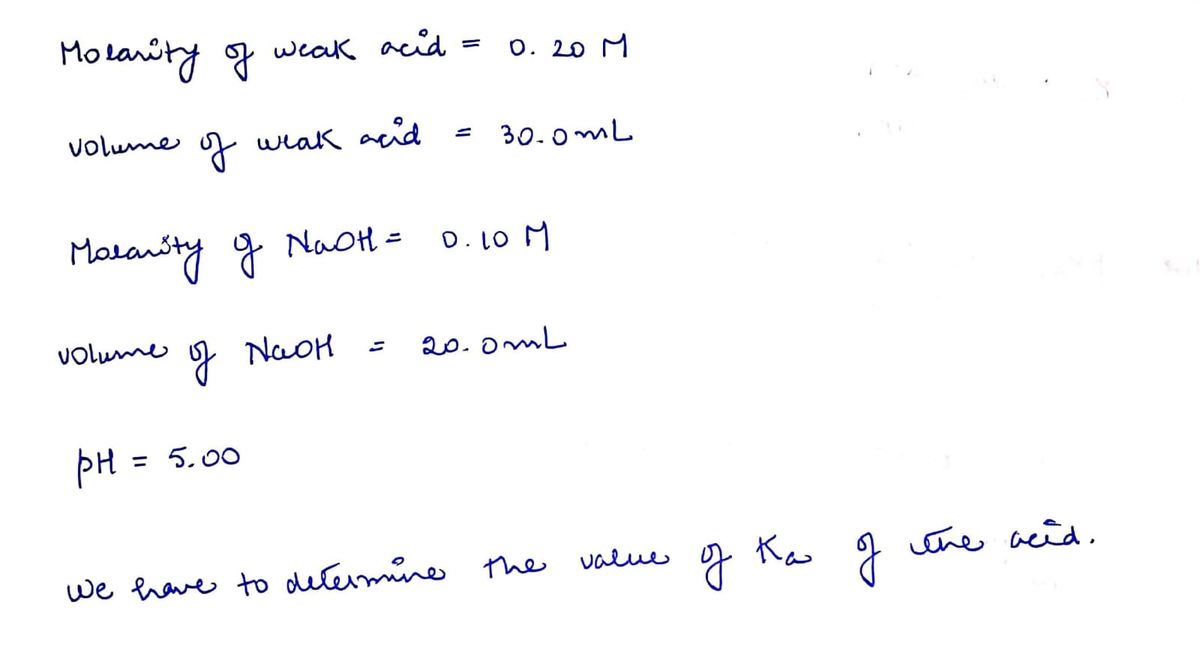 Molarity of weak acid = 0.20 M
volume of weak acid = 30.0 mL
Molarity of NaOH = 0.10 M
volume of NaOH = 20.0 mL
pH = 5.00
We have to determine the value of Ka of the acid.